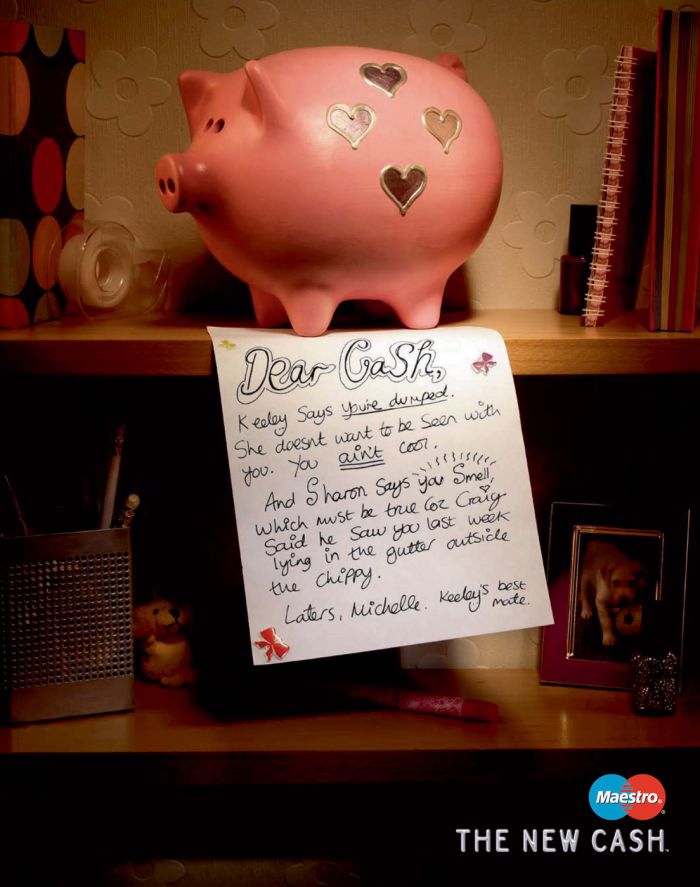 Dear Cash,
Keeley Says you're dumped.
She doesnt want to be Seen with
you. You ain't cool.
And Sharon Says you Smell,
which must be true Coz Craig
Said he Saw you last week
lying in the gutter outside
the Chippy.
Laters, Michelle. Keeley's best
mate.
Maestro®
THE NEW CASH.